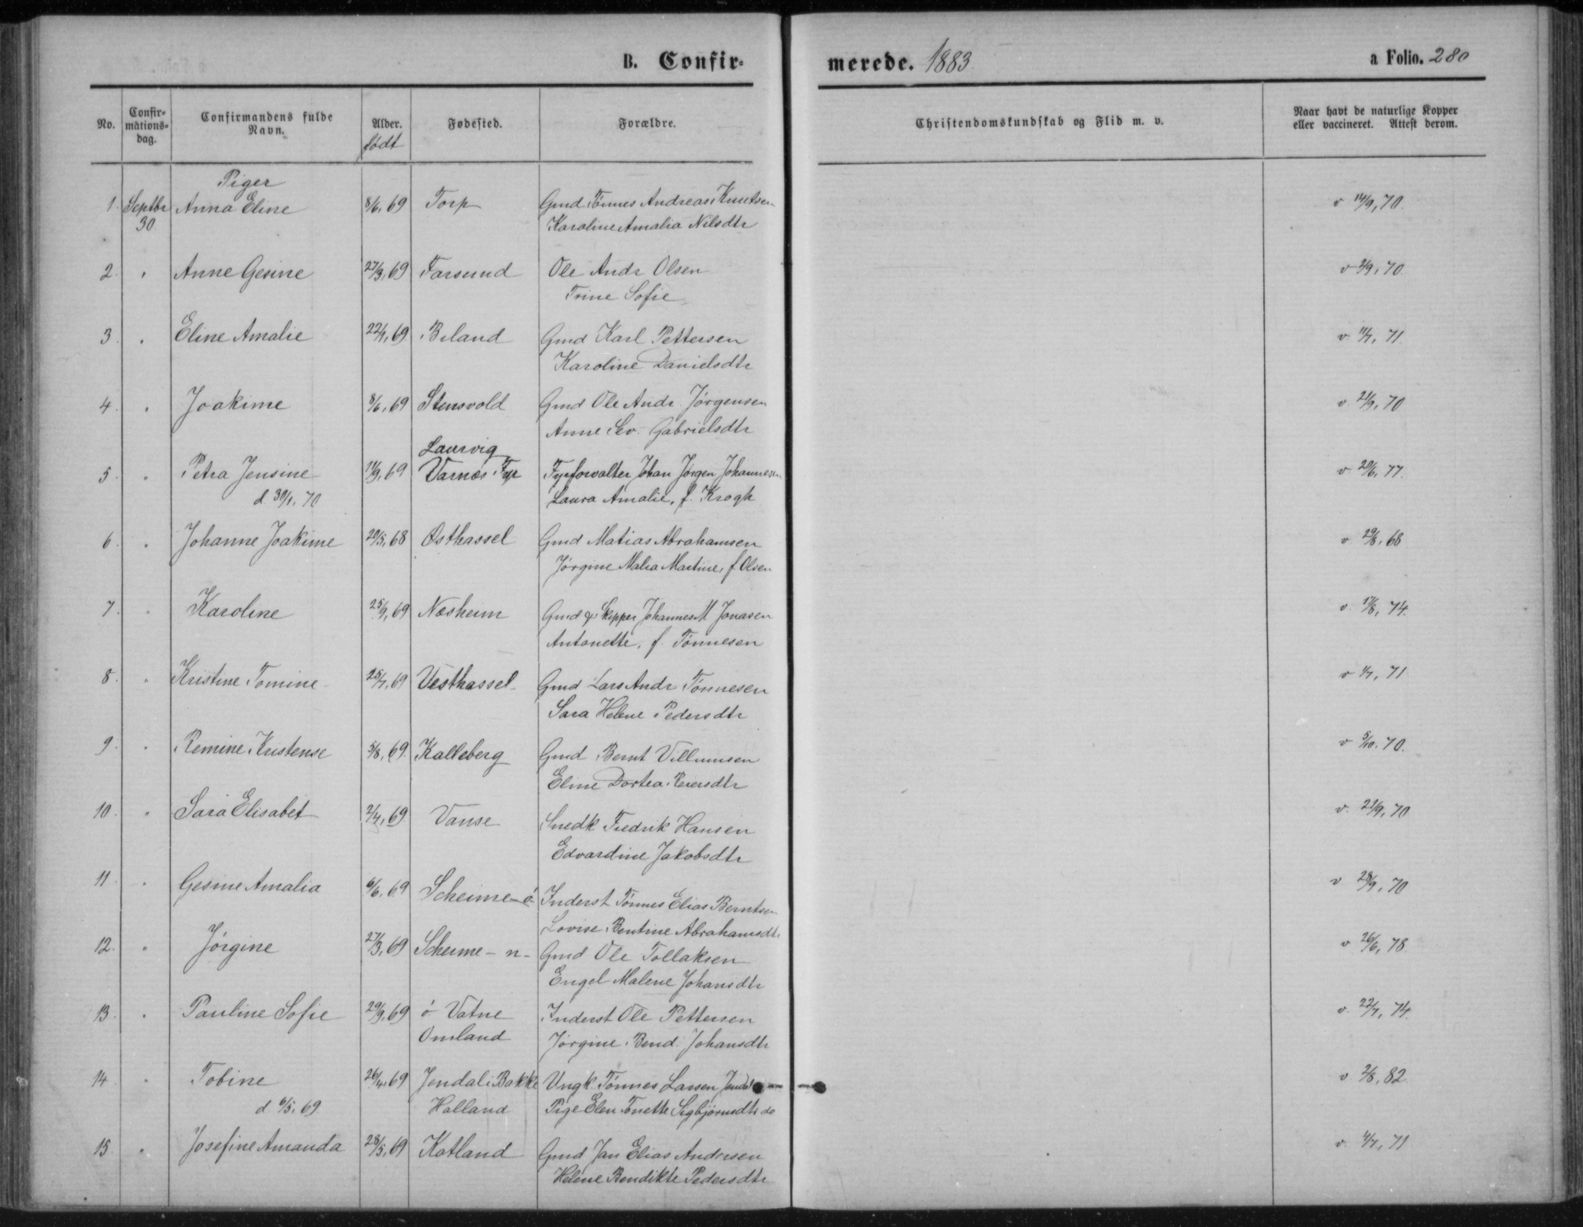 B. Confir-
merede. 1883.
a Folio. 280
No.
Confir-
mations-
dag.
Confirmandens fulde
Navn.
Alder.
født
Fødested.
Forældre.
Christendomskundskab og Flid m. v.
Naar havt de naturlige Kopper
eller vaccineret. Attest derom.
Piger
1. Septbr Anna Eline 8/6, 69 Torp Gmd Tønnes Andreas Knutsen v 14/9, 70
30 Karoline Amalia Nilsdtr
2. " Anne Gesine 27/3, 69 Farsund Ole Andr Olsen v 2/9, 70.
Trine Sofie
3. " Eline Amalie 22/1, 69 Biland Gmd Karl Pettersen v. 11/7, 71
Karoline Danielsdtr
4. " Joakime 8/6, 69 Stensvold Gmd Ole Andr Jørgensen v. 21/9, 70
Anne Sev. Gabrielsdtr
Laurvig
5. " Petra Jensine 11/9, 69 Varnæs Fyr Fyrforvalter Johan Jørgen Johannesen v 20/6, 77.
d 30/1, 70 Laura Amalie, f. Krogh
6. " Johanne Joakime 20/5, 68 Østhassel Gmd Matias Abrahamsen v 29/8, 68
Jørgine Malia Martine, f Olsen
7. " Karoline 25/9, 69 Næsheim Gmd & Skipper Johannes M Jonasen v. 17/8, 74.
Antonette, f. Tønnesen
8. " Kristine Tomine 25/7, 69 Vesthassel Gmd Lars Andr Tønnesen v 1/7, 71
Sara Helene Pedersdtr
9. " Remine Kristense 5/8, 69 Kalleberg Gmd Bernt Villumsen v 5/10, 70.
Eline Dortea Reiersdtr
10. " Sara Elisabet 2/4, 69 Vanse Snedk Fredrik Hansen v. 22/9, 70
Edvardine Jakobsdtr
11. " Gesine Amalia 6/6, 69 Scheime - ø Inderst Tønnes Elias Berntsen v 28/9, 70
Lovise Bentine Abrahamsdtr
12. " Jørgine 27/3, 69 Scheime - n - Gmd Ole Tollaksen v 26/6, 78
Engel Malene Johansdtr
13. " Pauline Sofie 29/9, 69 ø Vatne Inderst Ole Pettersen v. 22/7, 74.
Omland Jørgine Bend. Johansdtr
14. " Tobine 26/4, 69 Jendal i Bakke Ungk Tønnes Larsen v 2/8, 82
d 6/5, 69 Halland Pige Elen Tonette Sigbjørnsdtr do
15. " Josefine Amanda 28/5, 69 Katland Gmd Jan Elias Andresen v. 4/7, 71
Helene Bendikte Pedersdtr